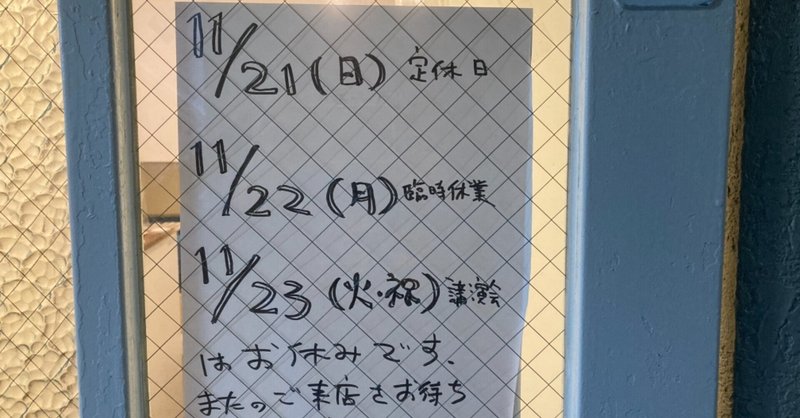 11/21(日) 定休日
11/22(月)臨時休業
11/23(火・祝)講演会
はお休みです、
またのご来店をお待ち